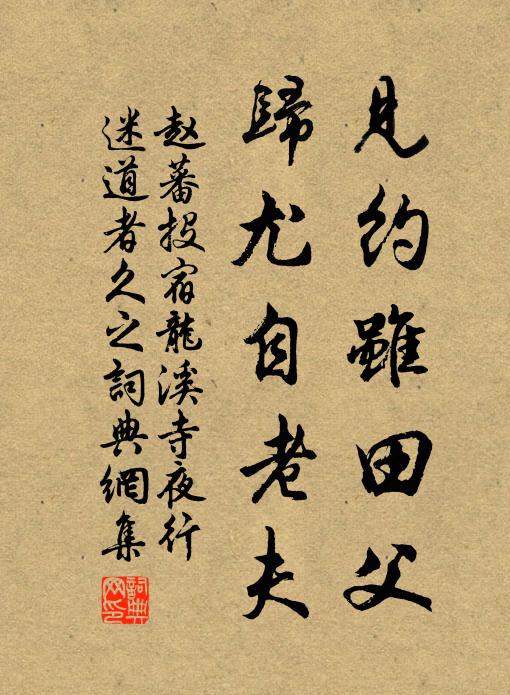 見約雖田父
歸尤自老夫
赵蕃投宿龍溪寺夜行
迷道者久之詞典網集
詞典网印